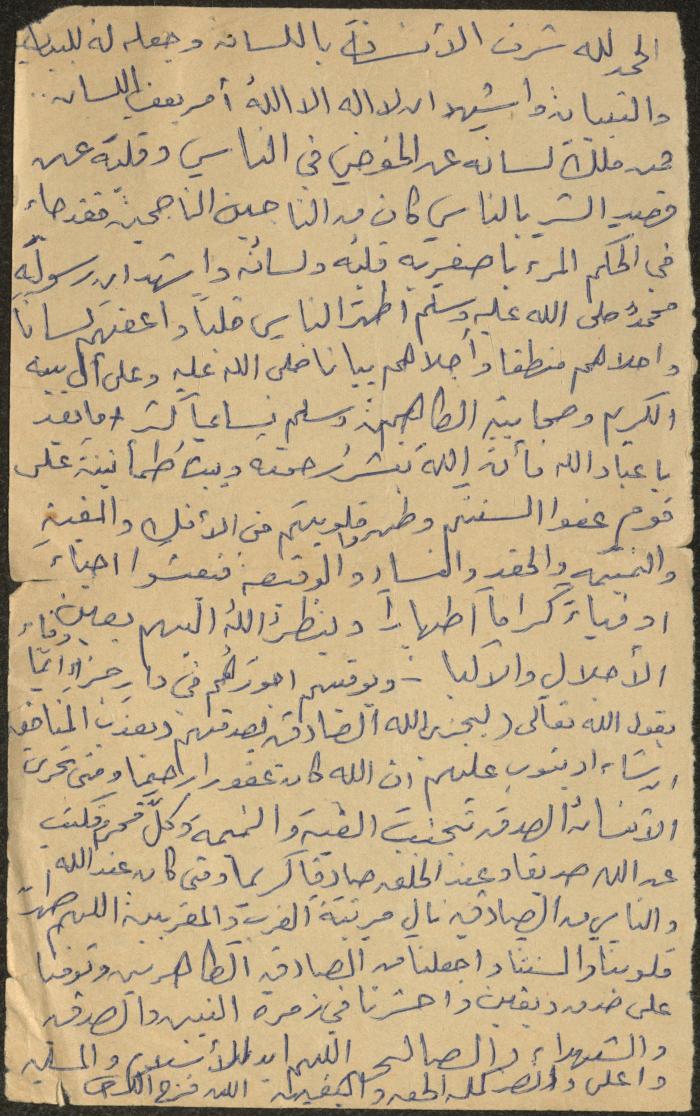 الحمد لله شرف الأنسان باللسان وجعله له للبيان
والتبيان واشهد ان لا اله الا الله أمر بعفة اللسان
فمن ملك لسانه عن الخوض في الناس وقلبه عن
قصد الشر بالناس كان من الناجين الناجحين فقد جاء
في الحكم المرء باصغريه قلبه ولسانه واشهد ان رسوله
محمد صلى الله عليه وسلم اطهر الناس قلباً واعفهم لساناً
واحلاهم منطقا وأجلاهم بيانا صلى الله عليه وعلى آل بيته
الكريم وصحابته الطاهرين وسلم تسليماً كثيرا وبعد
يا عباد الله فأن الله ينشر رحمته ويبث طمأنينة على
قوم عفوا السنتهم وطهروا قلوبهم من الأفك والغيبة
والنميمة والحقد والفساد والوقيعة فنعشوا احياء
اوفياء كراماً اطهاراً وينظر الله اليهم بعين
الأجلال والأكبار ويوفيهم اجورهم في دار جزاء
يقول الله تعالى (ليجزي الله الصادقين بصدقهم ويعذب المنافقين
ان شاء او يتوب عليهم ان الله كان غفورا رحيما ومتى تحرى
الأنسان الصدق تجنب الغيبة والنميمة وكل محرم فكتب
عند الله صديقا وعند الخلق صادقا كريما ومتى كان عند الله
والناس من الصادقين نال مرتبة القرب والمقربين اللهم طهر
قلوبنا والسنتنا واجعلنا من الصادقين الطاهرين وتوفنا
على صدق ويقين واحشرنا في زمرة النبيين والصدقين
والشهداء والصالحين اللهم ايد الأسلام والمسلمين
واعلي وانصر كلمة الحق والدين